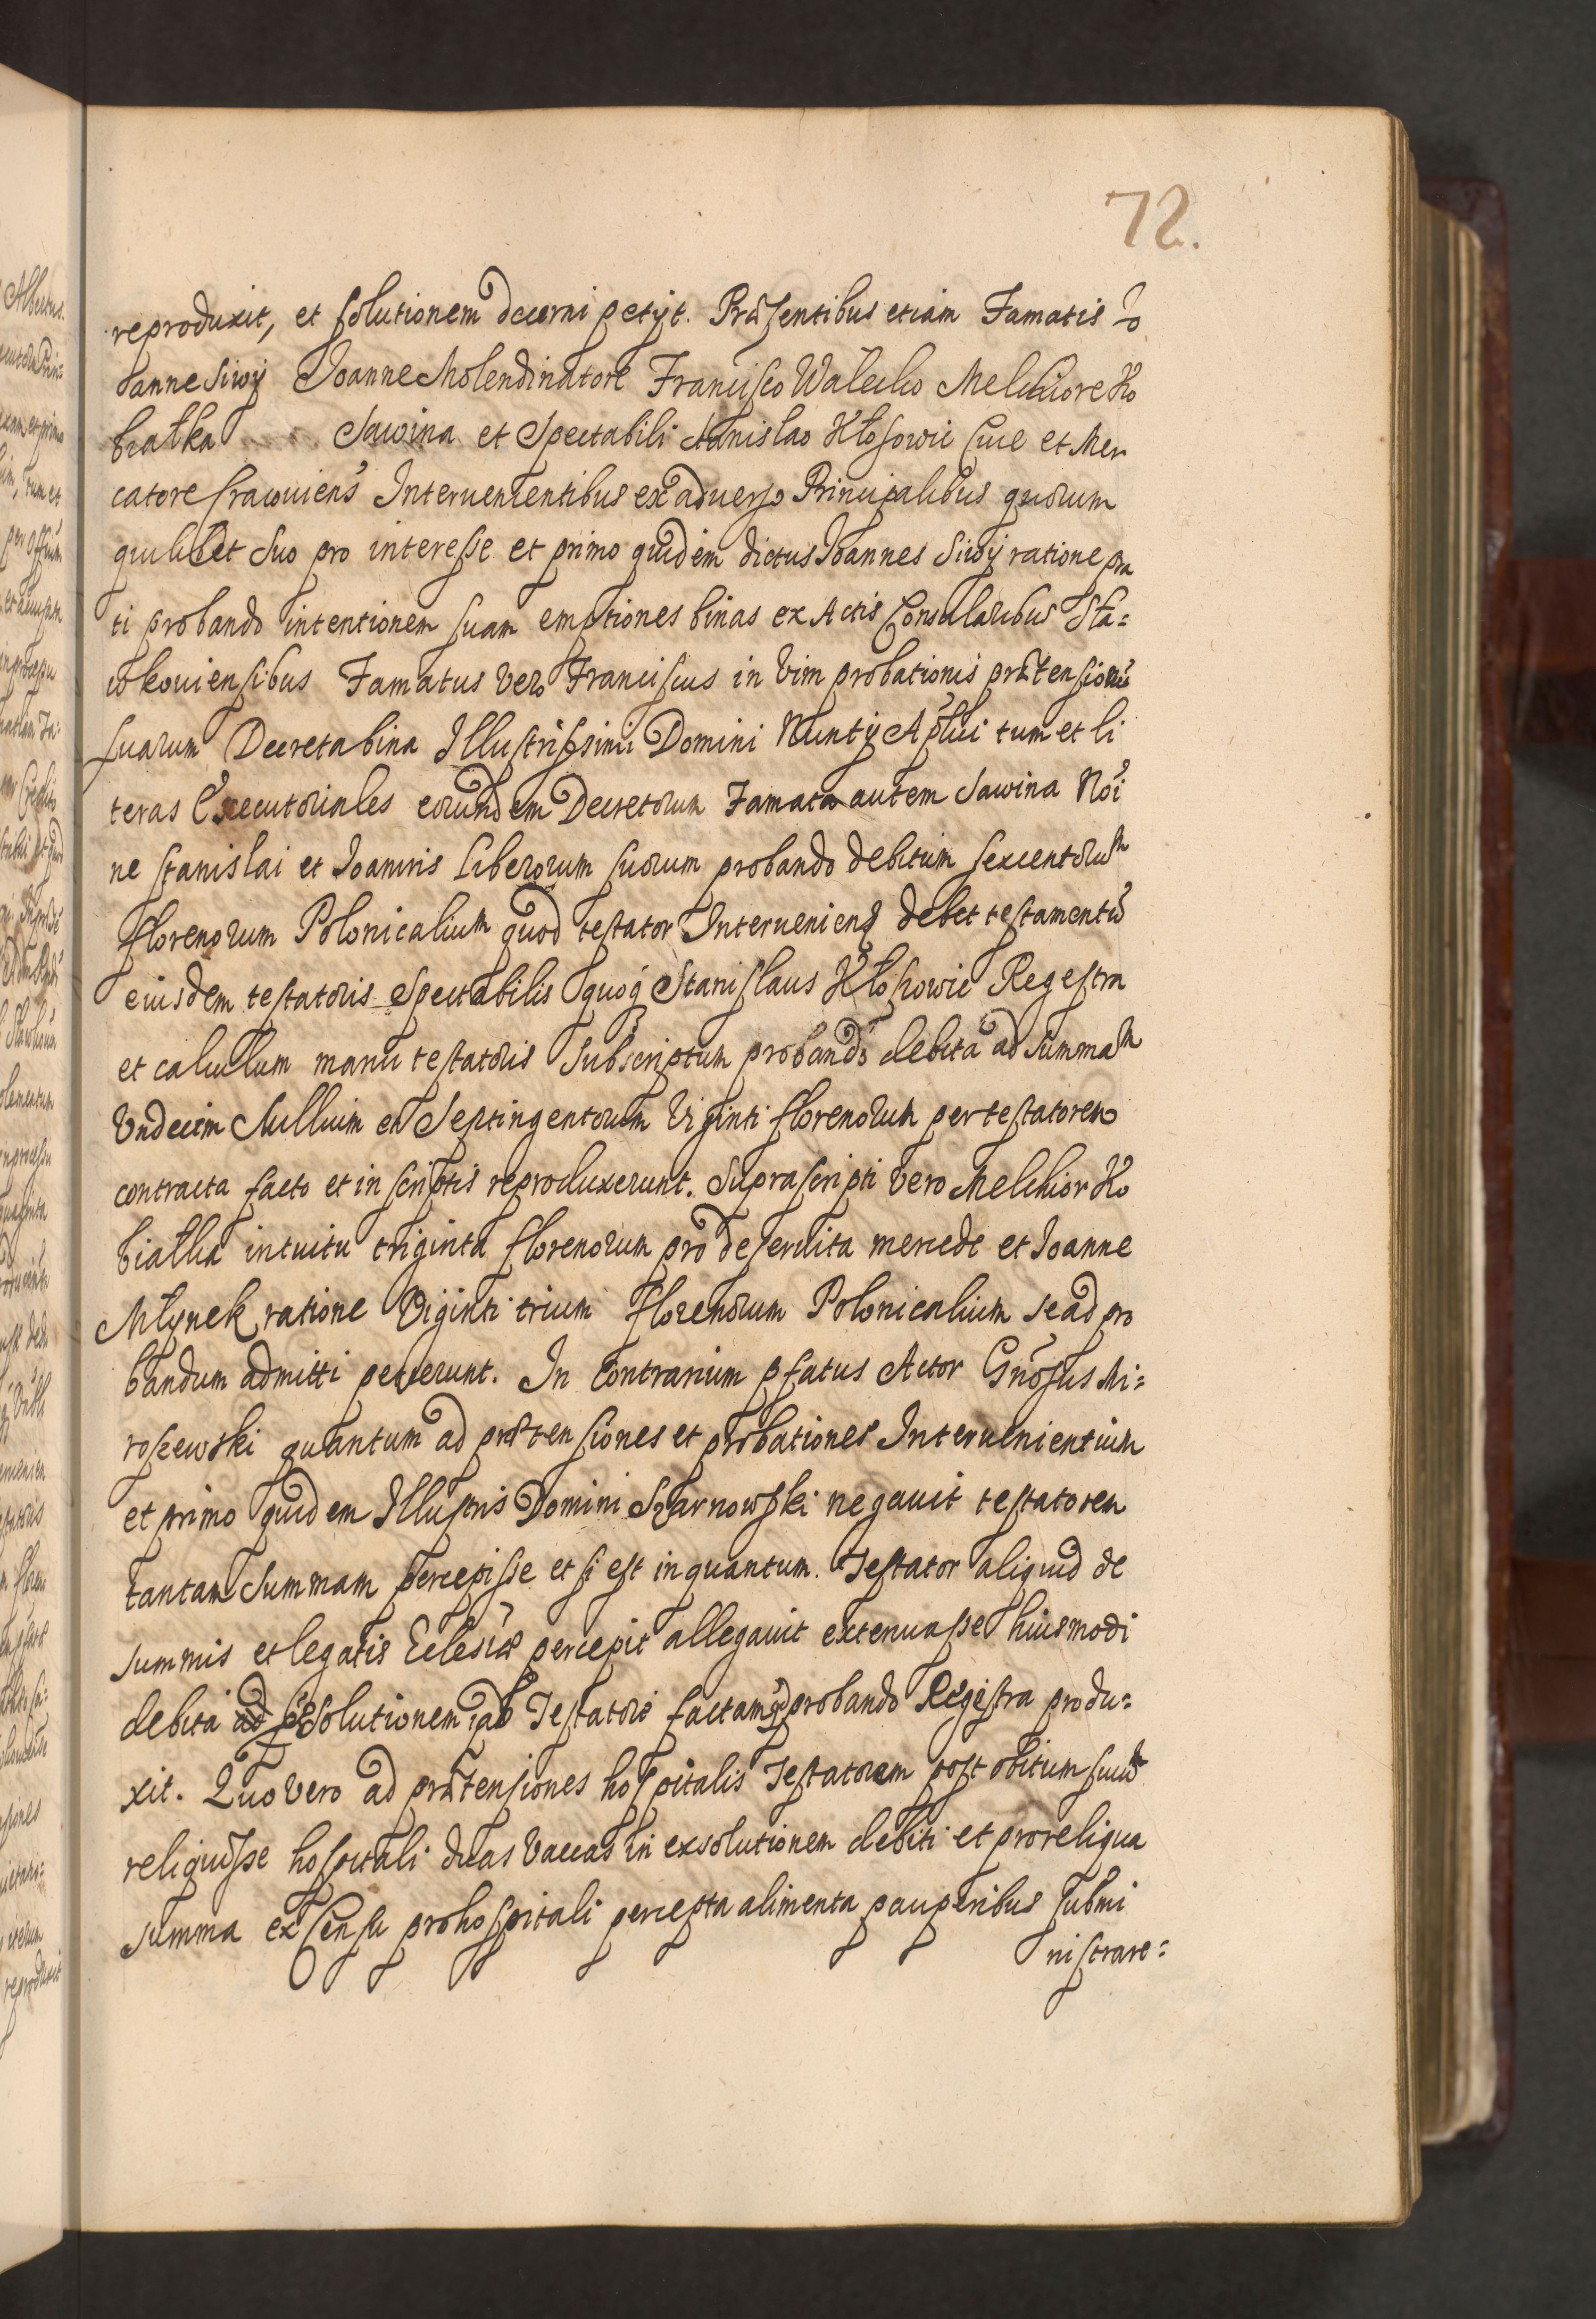 72.
reproduxit, et solutionem decerni petijt. Præsentibus etiam Famatis Jo
oanne Siwy Joanne Molendinatore Francisco Walecko Melchiore Ko
białka Sawina et Spectabili Stanislao Kłosowic Cive et Mer
catore Cracouiens Interuenientibus ex aduerso Principalibus quorum
quilibet Suo pro interesse et primo quidem dictus Joannes Siwy ratione pra
ti probando intentionem suam emptiones binas ex Actis Consularibus Sła=
wkouiensibus Famatus Vero Franciscus in Vim probationis prætensionu
suarum Decreta bina Illustrissimi Domini Nuntij Aplici tum et li
teras Executoriales eorundem Decretorum Famata autem Sawina Noi
ne Stanislai et Joannis Liberorum suorum probando debitum sexcentorum
florenorum Polonicalium quod testator Interuenienti debet testamentu
eiusdem testatoris Spectabilis quoq Stanislaus Kłosowic Regestra
et calculum manu testatoris Subscriptum probando debita ad Summam
Undecim Millium et Septingentorum Viginti florenorum per testatorem
contracta facto et in scriptis reproduxerunt. Suprascripti Vero Melchior Ko
białka intuitu triginta florenorum pro deseruita mercede et Joanne
Młynek ratione Viginti trium florenorum Polonicalium se ad pro
bandum admitti petierunt. In Contrarium pfatus Actor Gnosus Mi=
roszewski quantum ad prætensiones et probationes Interuenientium
et primo quidem Illustris Domini Szarnowski negauit testatorem
tantam Summam percepisse et si est in quantum. Testator aliquid de
summis et legatis Eclesiæ percepit allegauit extenuasse huiusmodi
debita Solutionem ab Testatore factam qd probando Regestra produ=
xit. Quo Vero ad prætensiones hospitalis Testatorem post obitum suum
reliquisse hospitali duas Vaccas in exsolutionem debiti et pro reliqua
summa ex Censu pro hospitali percepta alimenta pauperibus submi
nistrare=